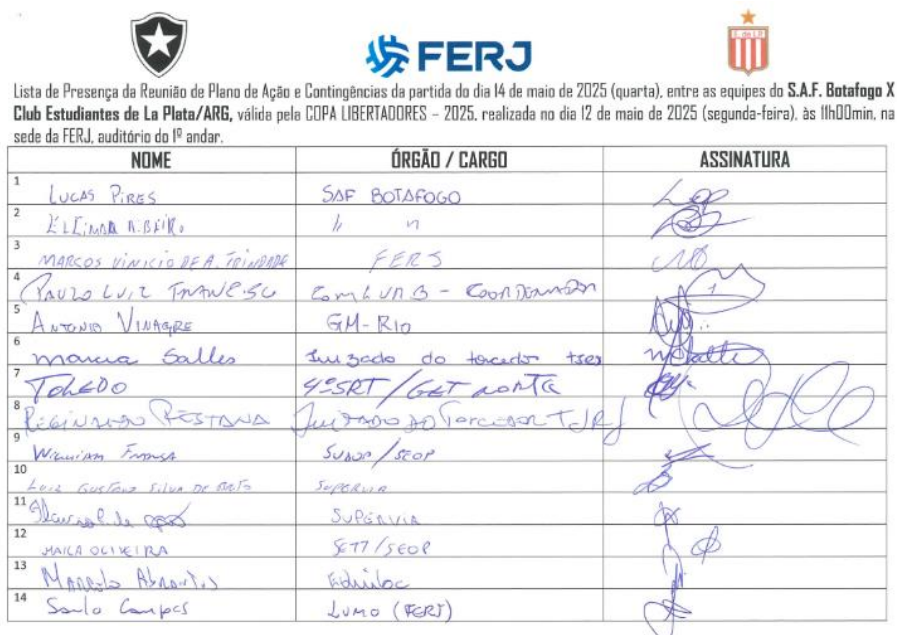 FERJ
E. de L.P.
Lista de Presença da Reunião de Plano de Ação e Contingências da partida do dia 14 de maio de 2025 (quarta), entre as equipes do S.A.F. Botafogo X
Club Estudiantes de La Plata/ARG, válida pela COPA LIBERTADORES – 2025, realizada no dia 12 de maio de 2025 (segunda-feira), às 11h00min, na
sede da FERJ, auditório do 1º andar.
NOME ÓRGÃO / CARGO ASSINATURA
1 LUCAS PIRES SAF BOTAFOGO
2 RIBEIRO " "
3 MARCOS VINICIO DE A. TRINDADE FERJ
4 PAULO LUIZ - COORDENADOR
5 ANTONIO VINAGRE GM-RIO
6 marcia Salles Juizado do torcedor TJRJ
7 TOLEDO 4ª SRT / GET NORTE
8 REGINALDO PESTANA JUIZADO DO TORCEDOR TJRJ
9 WILLIAM FRANÇA / SEOP
10 LUIZ GUSTAVO SILVA DE BRITO SUPERVIA
11 SUPERVIA
12 MAICA OLIVEIRA / SEOP
13 MARCELO ABRANTES
14 Saulo Campos LUMO (FERJ)